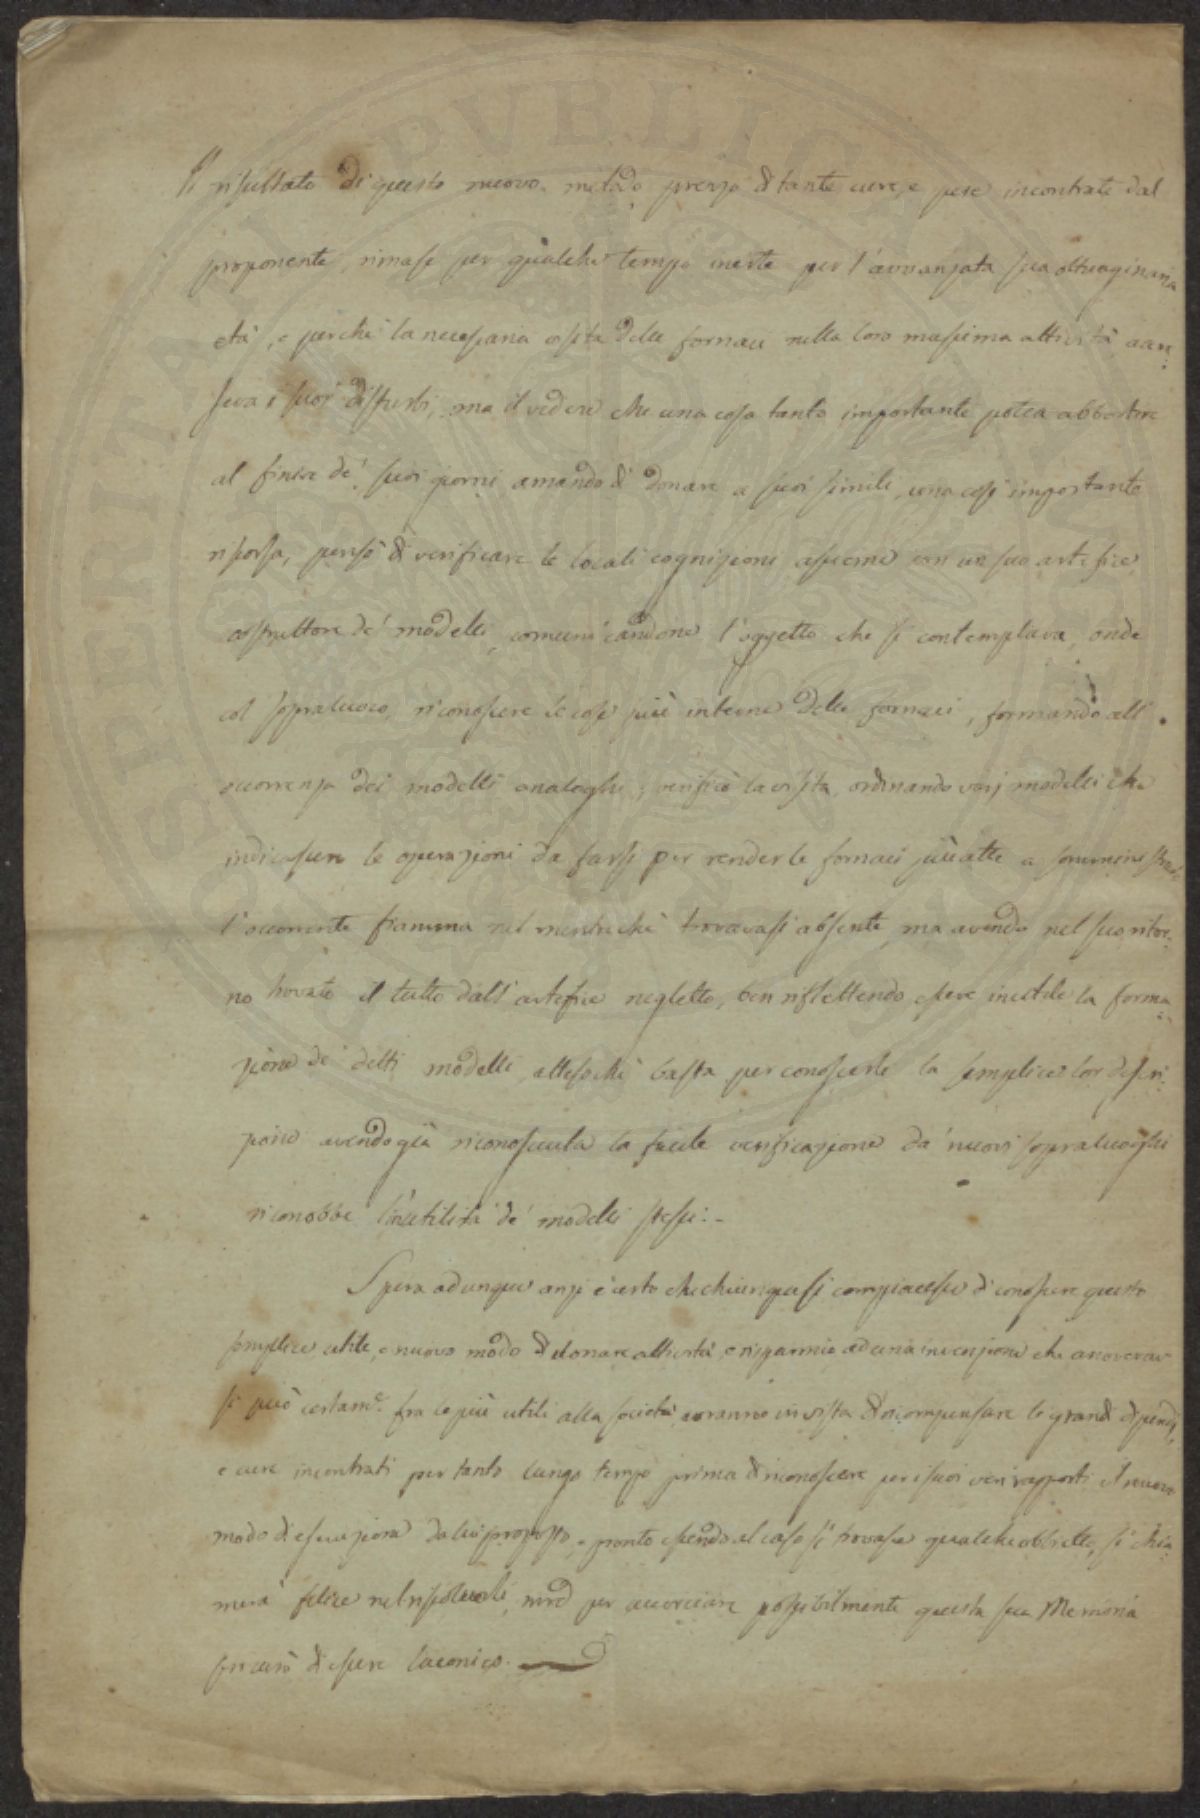 Il risultato di questo nuovo metodo prezzo di tante cure, e pene incontrate dal
proponente, rimase per qualche tempo inerte per l'avvanzata sua ottuaginaria
età, e perchè la necessaria visita delle fornaci nella loro massima attività
i suoi disturbi, ma il vedere che una cosa tanto importante potea abbortire
al finire de' suoi giorni amando di donare a suoi simili, una così importante
risorsa, pensò di verificare le locali cognizioni assieme con un suo artefice
costruttore de' modelli, comunicandone l'oggetto che si contemplava, onde
col sopraluoco, riconoscere le cose più interne delle fornaci, formando all'
occorrenza dei modelli analoghi, verificò la visita, ordinando varj modelli che
indicassero le operazioni da farsi per render le fornaci più atte a somministrare
l'occorrente fiamma nel mentre che trovavasi absente, ma avendo nel suo ritor-
no trovato il tutto dall'artefice negletto, ben riflettendo essere inutile la forma-
zione de' detti modelli, attesochè basta per conoscerli la semplice lor descri-
zione avendo già riconosciuta la facile verificazione da' nuovi sopraluoghi
riconobbe l'inutilità de' modelli stessi.-
Spera adunque anzi è certo che chiunque si compiacesse di conoscere questo
semplice utile, e nuovo modo di donare attività, e risparmio ad una invenzione che anoverar
si può certam.e fra le più utili alla società, avranno in vista di ricompensare le grandi dispendj,
e cure incontrati per tanto lungo tempo prima di riconoscere per i suoi veri rapporti il nuovo
modo di esecuzione da lui proposto, e pronto essendo al caso si trovasse qualche obbietto, si chia-
merà felice nel risolverli, per accorciare possibilmente questa sua Memoria
procurò di essere laconico.